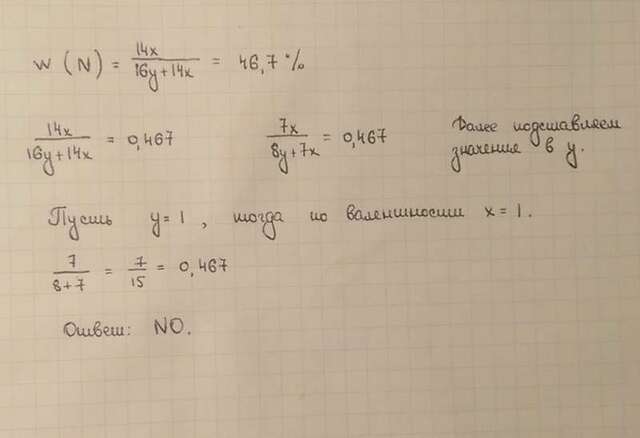 w (N) = 14x / 16y+14x = 46,7 %
14x / 16y+14x = 0,467   7x / 8y+7x = 0,467   Далее подставляем
значения в y.
Пусть y=1, тогда по валентности x=1.
7 / 8+7 = 7 / 15 = 0,467
Ответ: NO.